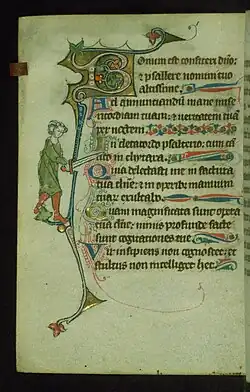 Bonum est confiteri dño:
& psallere nomini tuo
altissime.
Ad annunciandũ mane mise
ricordiam tuam: & ueritatem tuã
per noctem.
In decacordo psalterio: cum cã
tico in cythara.
Quia delectasti me in factura
tua dñe: & in operibȝ manuum
tuarȝ exultabo.
Quam magnificata sunt opera
tua dñe: nimis profunde facte
sunt cogitationes tue.
Vir insipiens non cognoscet: et
stultus non intelliget hec.